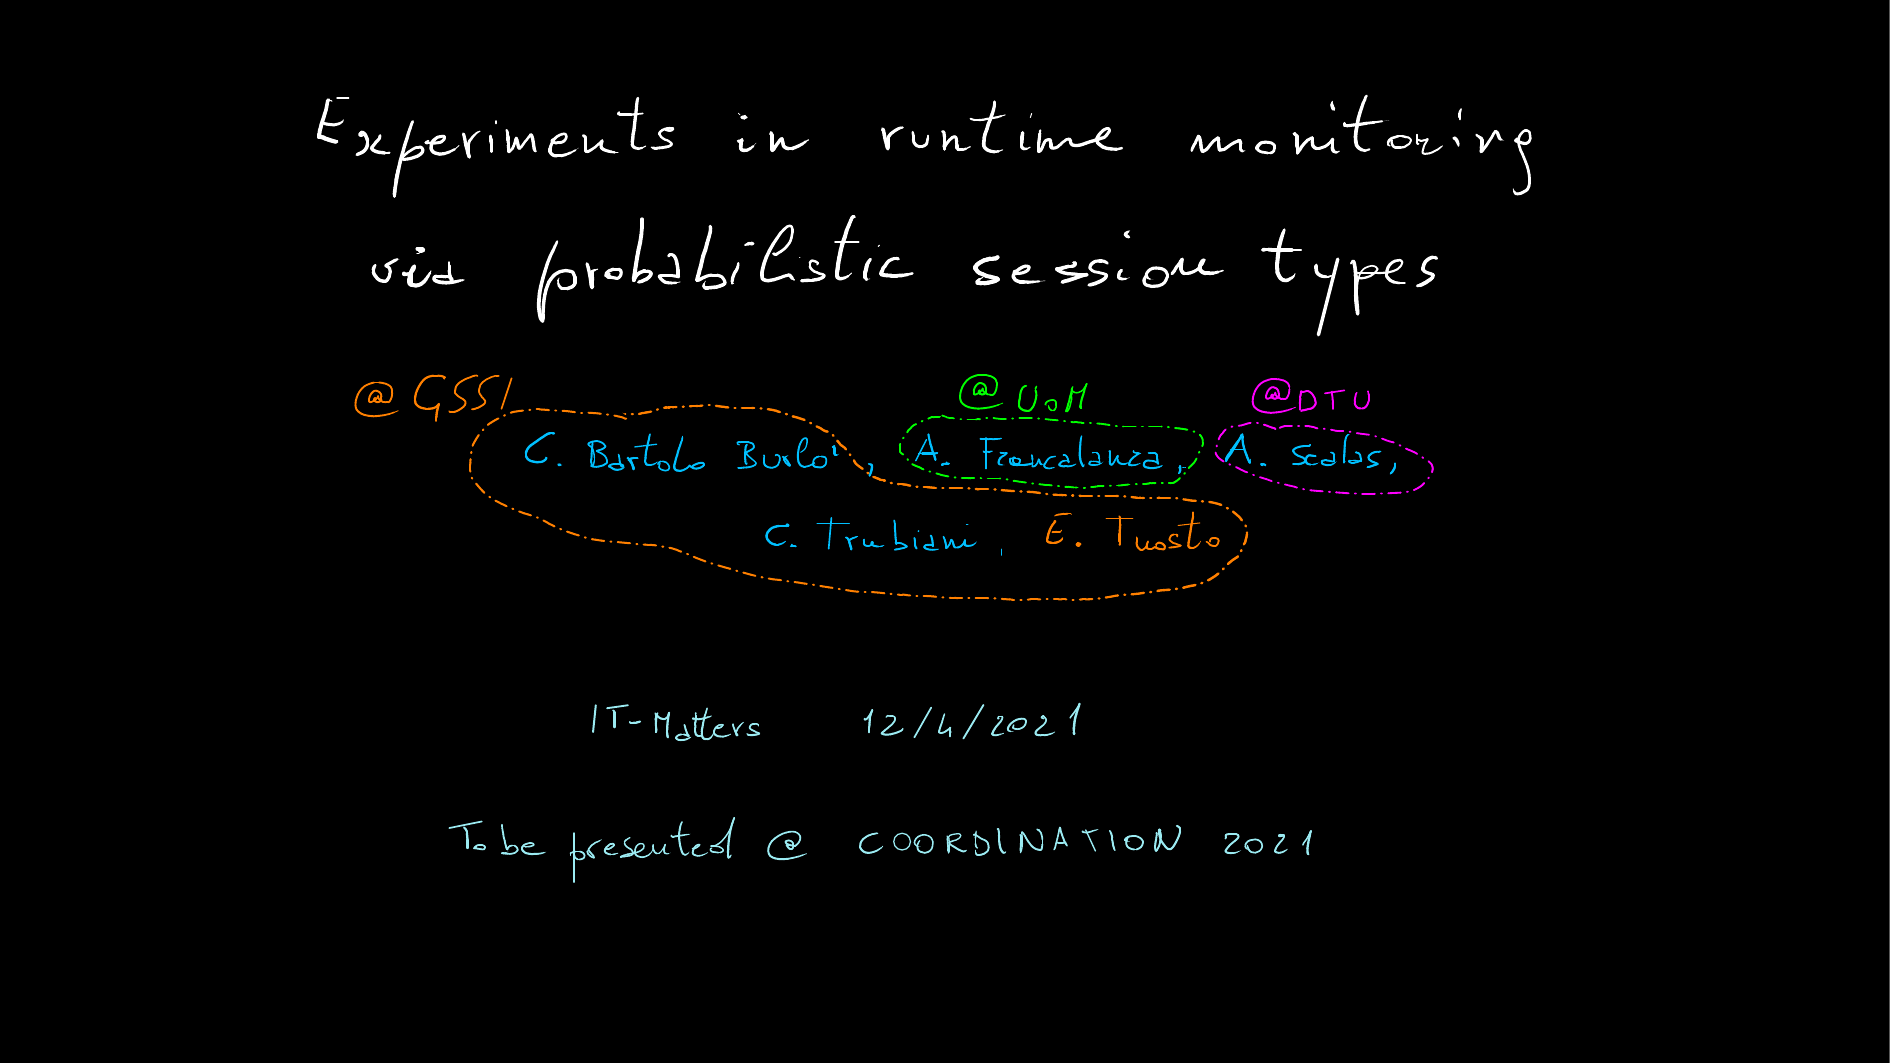 Experiments in runtime monitoring
via probabilistic session types
@GSSI @UoM @DTU
C. Bartolo Burlo', A. Francalanza, A. Scalas,
C. Trubiani, E. Tuosto
IT-Matters 12/4/2021
To be presented @ COORDINATION 2021